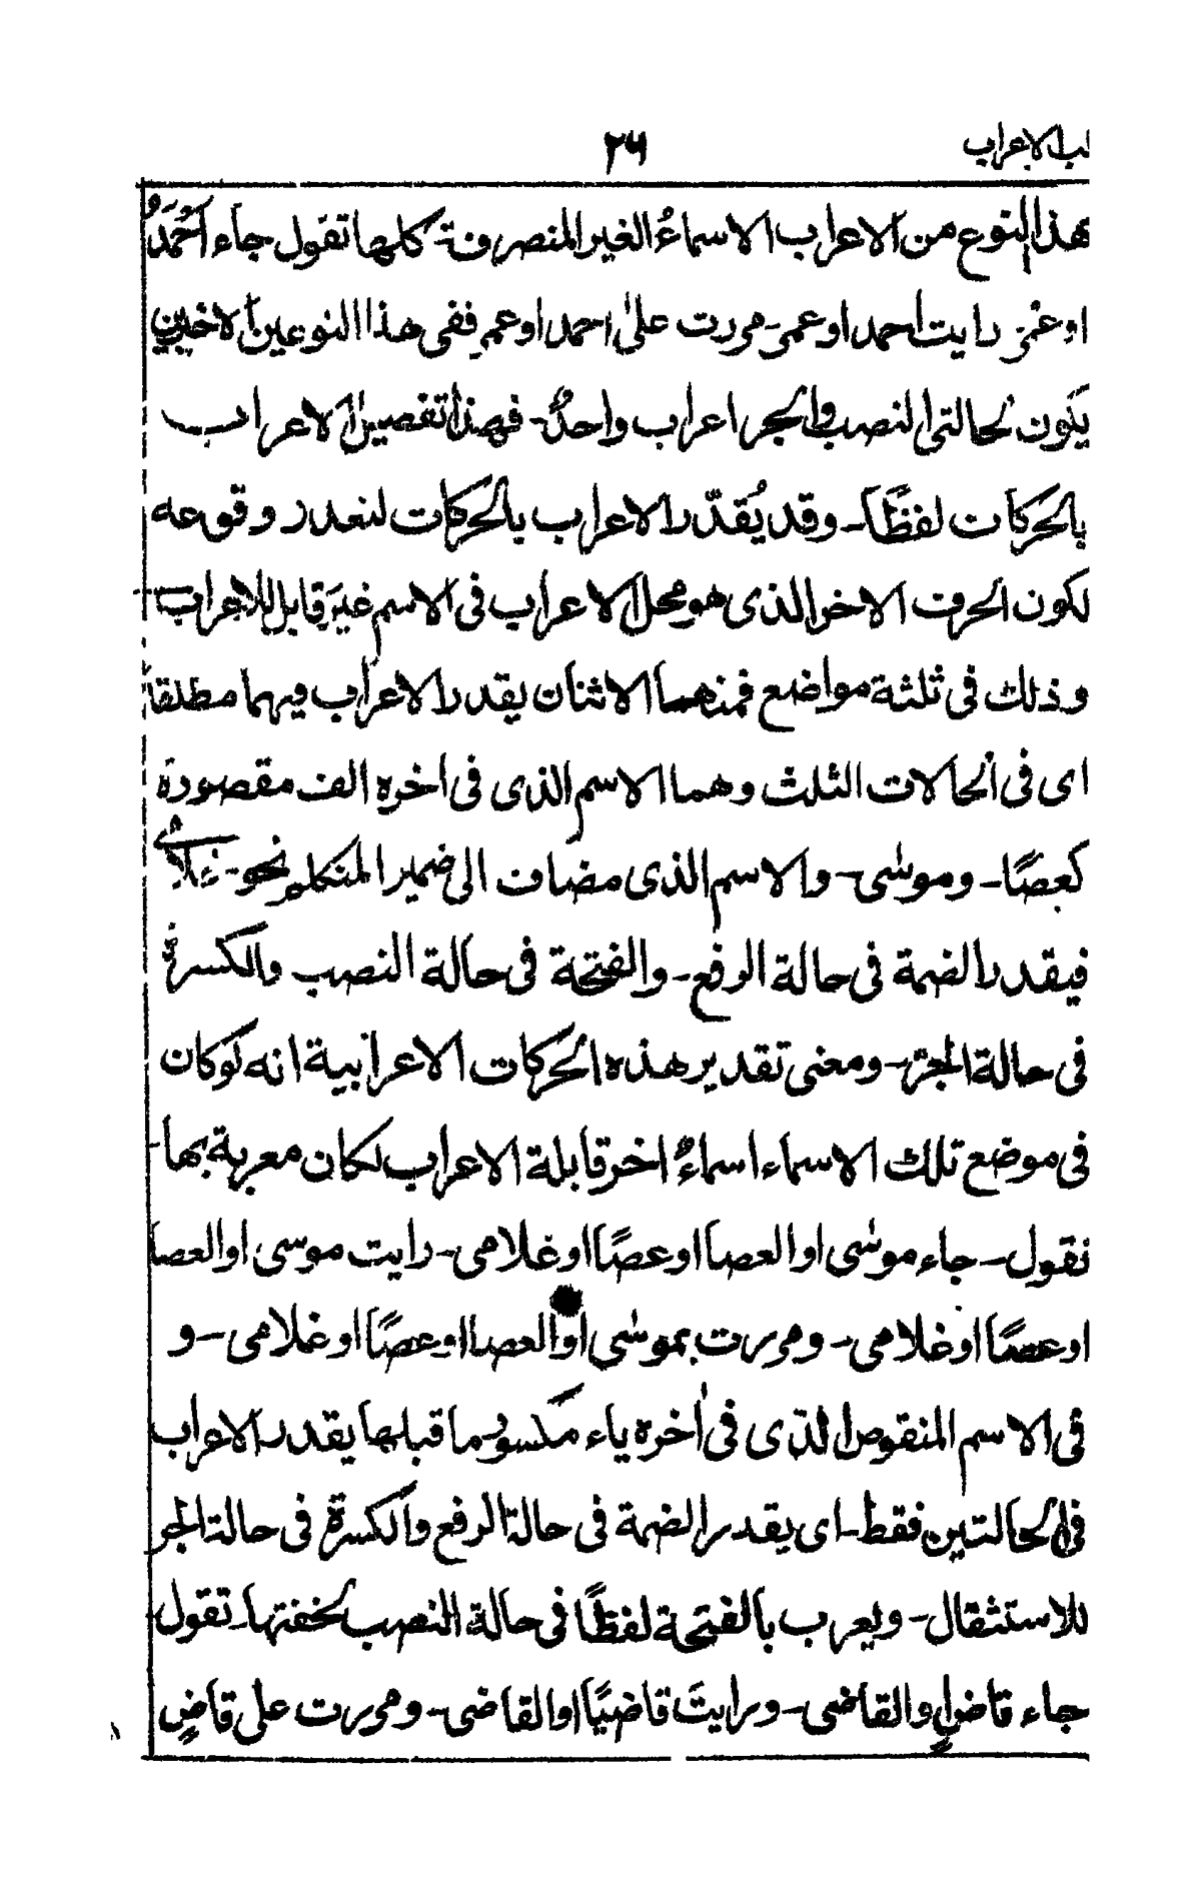 لب الاعراب
٢٦
بهذا النوع من الاعراب الاسماءُ الغير المنصرفة كلها تقول جاء أحْمَدُ
او عمَر رايت احمد او عمر۔ مررت علىٰ احمد او عمر۔ ففى هذا النوعين الاخيرين
يكون لحالتى النصب والجر اعراب واحدٌ۔ فهذا تفصيل الاعراب
بالحركات لفظًا۔ وقد يُقدّر الاعراب بالحركات لتعذر وقوعه
لكون الحرف الاخر الذى هو محل الاعراب فى الاسم غيرَ قابل للاعراب
وذلك فى ثلثة مواضع فمنها الاثنان يقدر الاعراب فيهما مطلقا
اى فى الحالات الثلث وهما الاسم الذى فى اخره الف مقصورة
كعصًا۔ وموسٰى۔ والاسم الذى مضاف الى ضمير المتكلم نحو۔ غلامى
فيقدر الضمة فى حالة الرفع۔ والفتحة فى حالة النصب والكسرة
فى حالة الجر۔ ومعنى تقدير هذه الحركات الاعرابية انه لوكان
فى موضع تلك الاسماء اسماءٌ اخر قابلة الاعراب لكان معربة بها۔
نقول۔ جاء موسٰى او العصا او عصًا او غلامى۔ رايت موسى او العصا
او عصًا او غلامى۔ ومررت بموسٰى او العصا او عصًا او غلامى۔ و
فى الاسم المنقوص الذى فى اٰخره ياء مكسور ما قبلها يقدر الاعراب
فى الحالتين فقط۔ اى يقدر الضمة فى حالة الرفع والكسرة فى حالة الجر
للاستثقال۔ ويعرب بالفتحة لفظًا فى حالة النصب لخفتها۔ تقول
جاء قاضٍ او القاضى۔ ورايتَ قاضيًا او القاضى۔ ومررت على قاضٍ